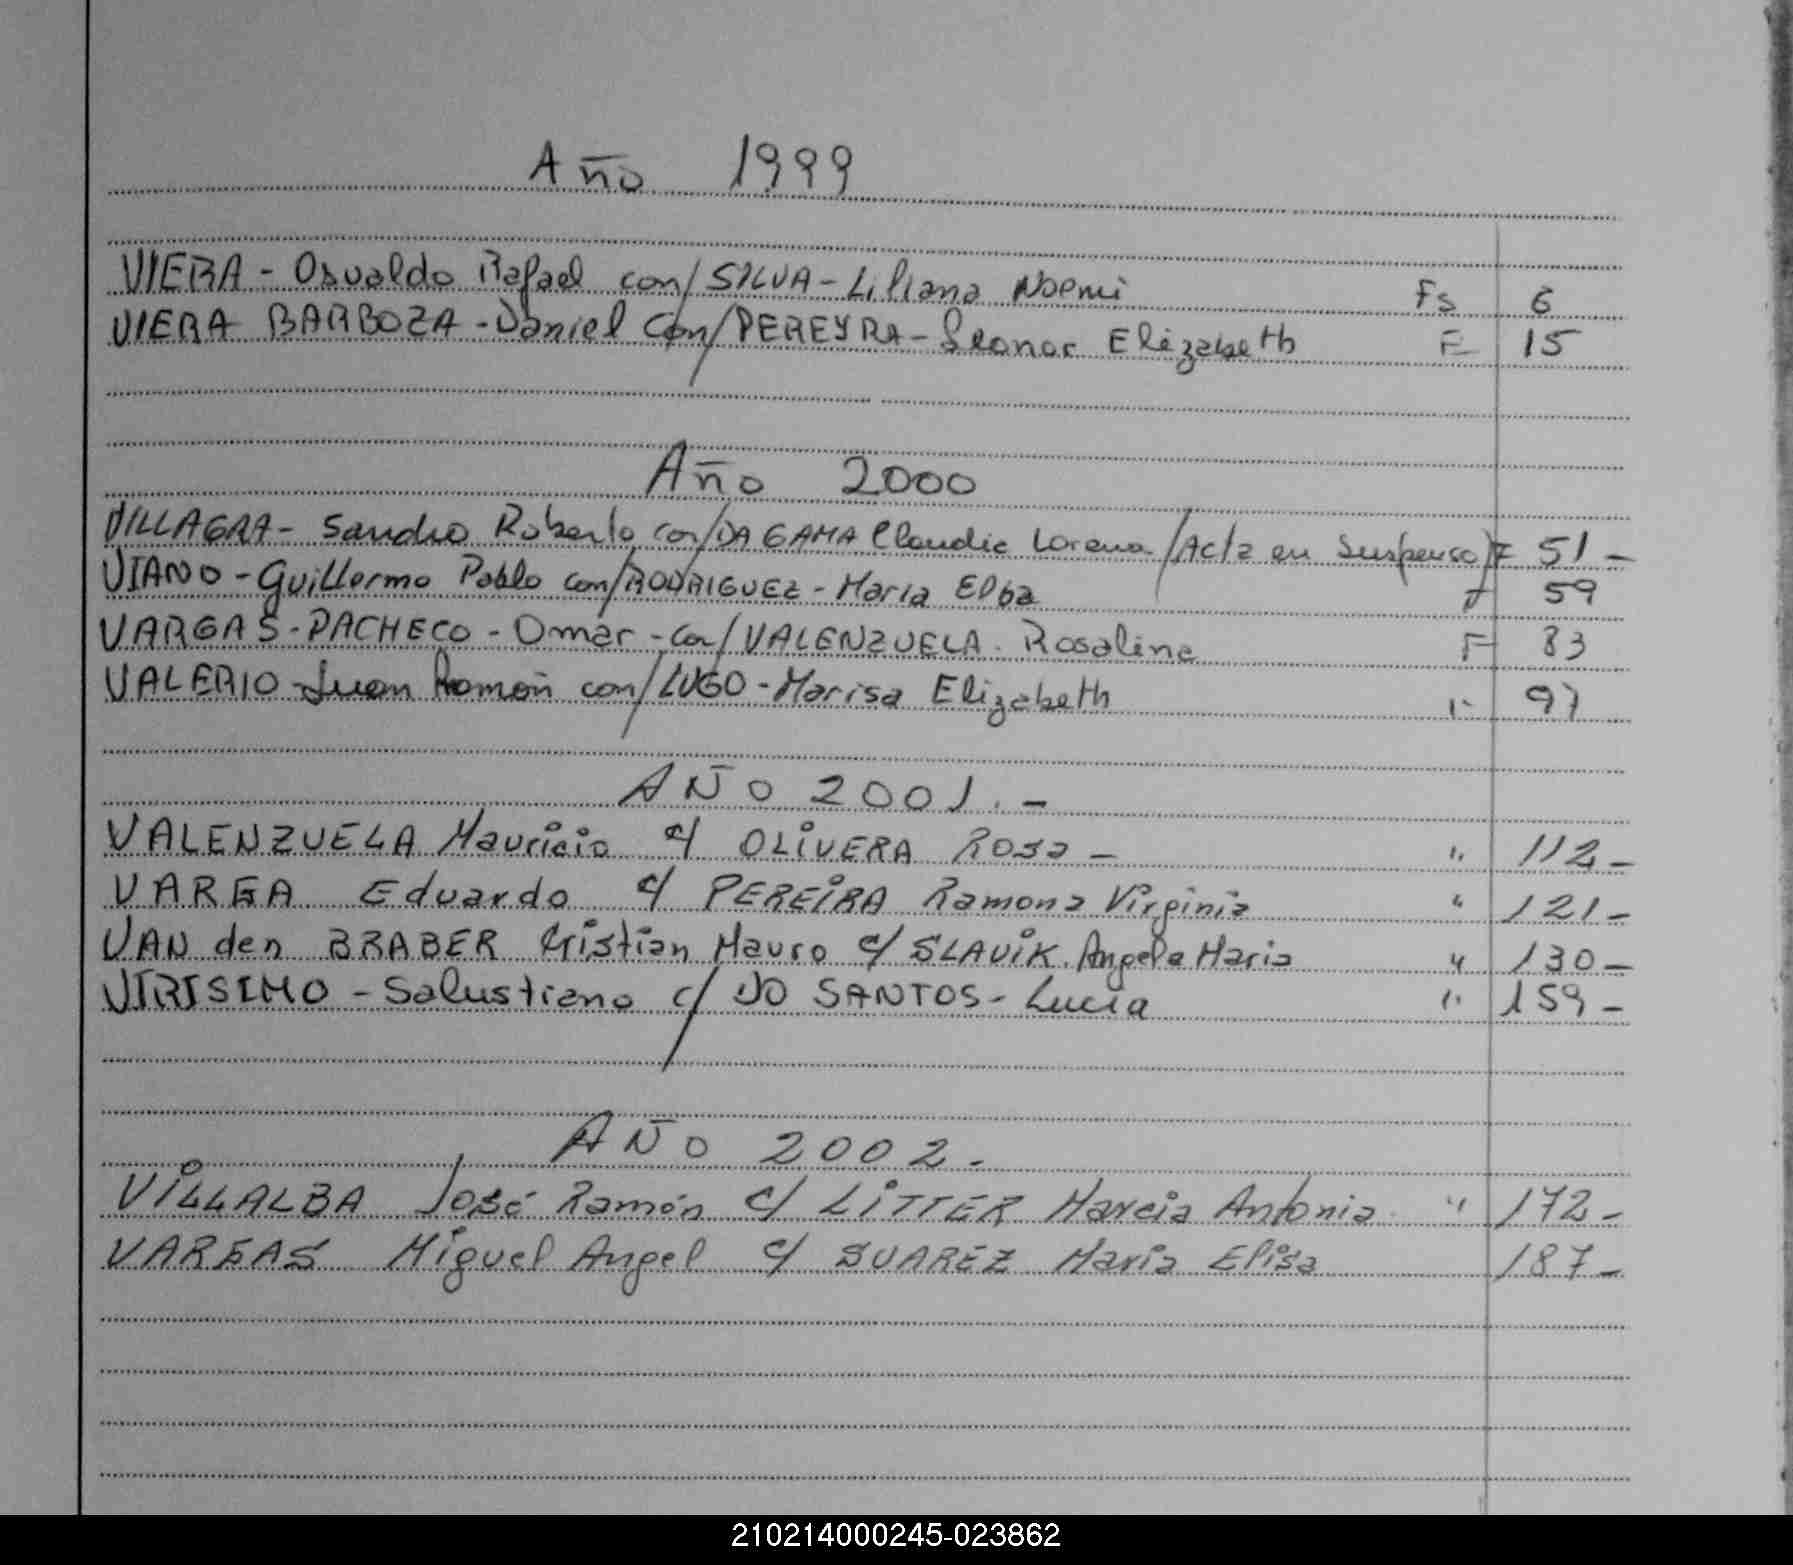 Año 1999
VIERA - Osvaldo Rafael con/ SILVA - Liliana Noemi Fs 6
VIERA BARBOZA - Daniel Con/ PEREYRA - Leonor Elizabeth F 15
Año 2000
VILLAGRA - Sandro Roberto con/ DA GAMA Claudia Lorena /Acta en Suspenso/ F 51 -
VIANO - Guillermo Pablo con/ RODRIGUEZ - Maria Elba F 59
VARGAS - PACHECO - Omar - con/ VALENZUELA. Rosalina F 83
VALERIO - Juan Ramón con/ LUGO - Marisa Elizabeth " 97
AÑO 2001. -
VALENZUELA Mauricio c/ OLIVERA Rosa - " 112 -
VARGA Eduardo c/ PEREIRA Ramona Virginia " 121 -
VAN den BRABER Cristian Mauro c/ SLAVIK. Angela Maria " 130 -
VIRISIMO - Salustiano c/ DO SANTOS - Lucia " 159 -
AÑO 2002. -
VILLALBA José Ramón c/ LITTER Marcia Antonia " 172 -
VARGAS Miguel Angel c/ SUAREZ Maria Elisa 187 -
210214000245-023862